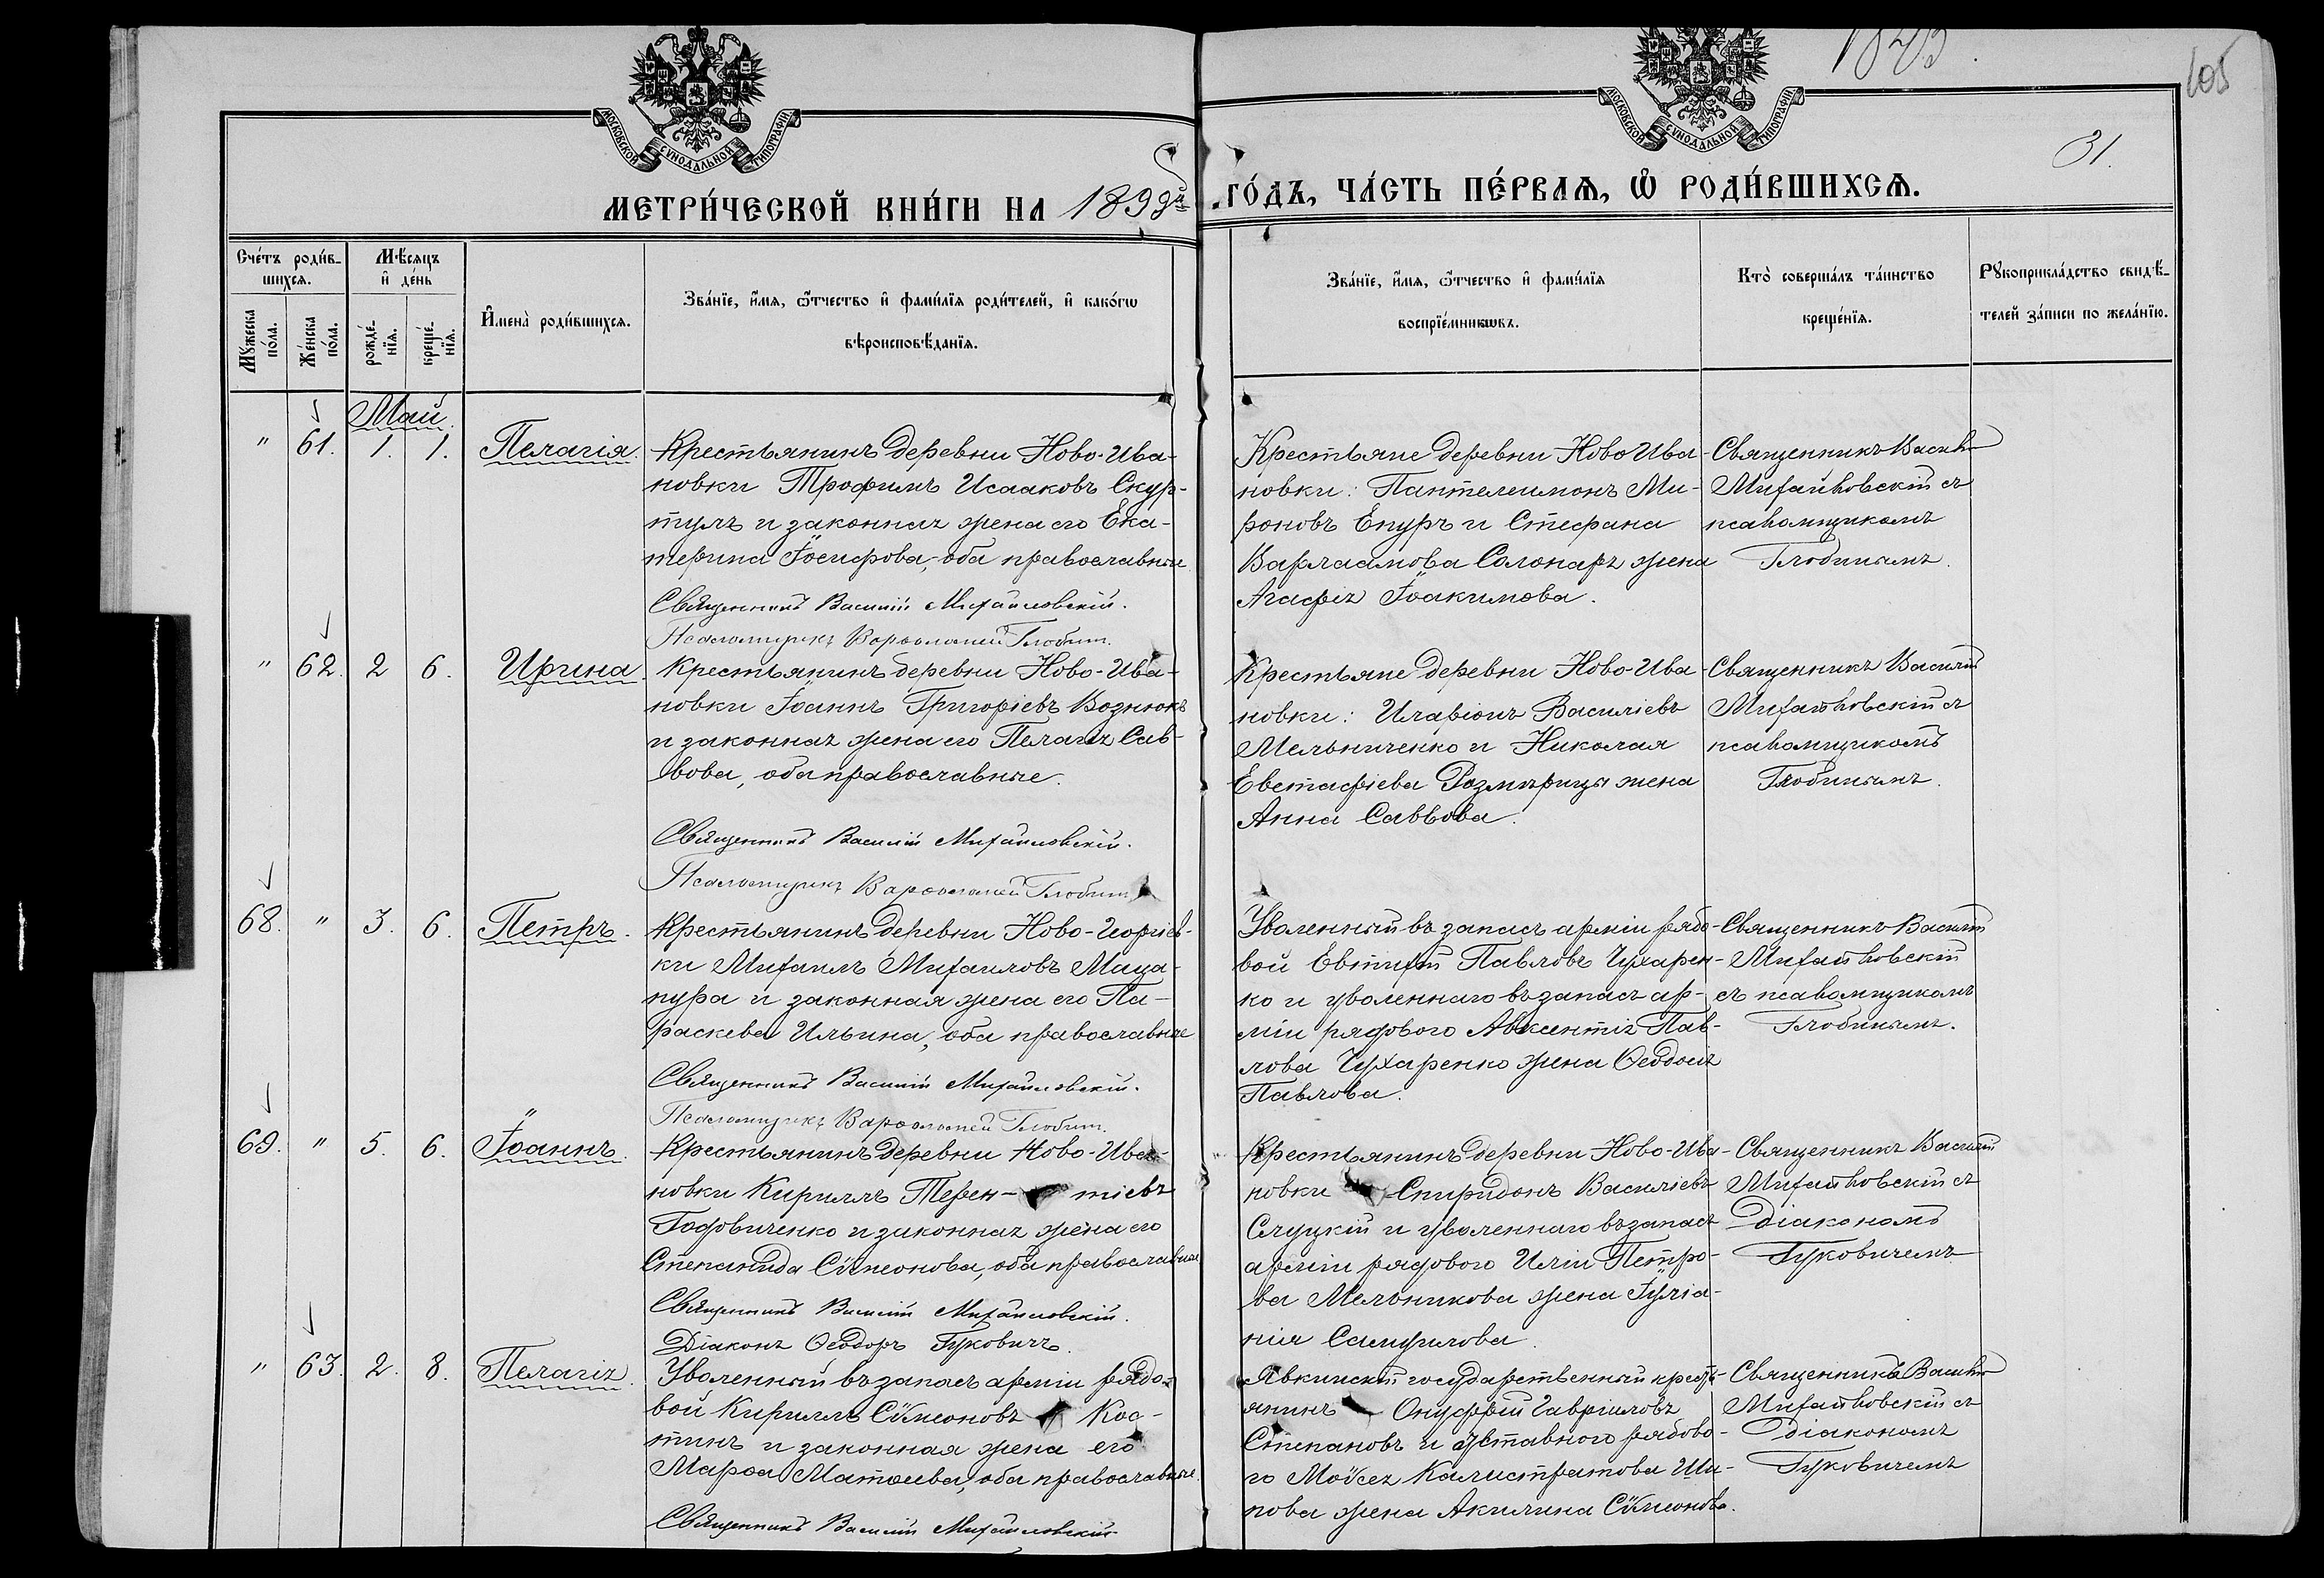 1843.
105
31.
МОСКОВСКОЙ СѴНОДАЛЬНОЙ ТИПОГРАФІИ
МОСКОВСКОЙ СѴНОДАЛЬНОЙ ТИПОГРАФІИ
МЕТРИ́ЧЕСКОЙ КНИ́ГИ НА 1899й ГО́ДЪ, ЧА́СТЬ ПЕ́РВАѦ, Ѿ РОДИ́ВШИХСѦ.
Сче́тъ роди́в-
шихсѧ.
Мꙋ́жеска
по́ла.
Же́нска
по́ла.
Мѣ́сѧцъ
и҆ де́нь
рожде́-
нїѧ.
креще́-
нїѧ.
И҆мена̀ роди́вшихсѧ.
Зва́нїе, и҆́мѧ, ѻ҆́тчество и҆ фами́лїѧ роди́телей, и҆ како́гѡ
вѣроисповѣ́данїѧ.
Зва́нїе, и҆́мѧ, ѻ҆́тчество и҆ фами́лїѧ
воспрїе́мникѡвъ.
Кто̀ соверша́лъ та́инство
креще́нїѧ.
Рꙋкоприкла́дство свидѣ́-
телей за́писи по жела́нїю.
Май.
" 61. 1. 1. Пелагія.
Крестьянинъ деревни Ново-Ива-
новки Трофимъ Исааковъ Скур-
тулъ и законная жена его Ека-
терина Іосифова, оба православные
Священникъ Василій Михайловскій.
Псаломщикъ Варѳоломей Глобин.
Крестьяне деревни Ново Ива-
новки: Пантелеимонъ Ми-
роновъ Епуръ и Стефана
Варлаамова Солонаръ жена
Агафія Іоакимова.
Священникъ Василій
Михайловскій съ
псаломщикомъ
Глобинымъ.
" 62. 2 6. Ирина.
Крестьянинъ деревни Ново-Ива-
новки Іоаннъ Григоріевъ Вознюкъ
и законная жена его Пелагія Сав-
вова, оба православные.
Священникъ Василій Михайловскій.
Псаломщикъ Варѳоломей Глобин
Крестьяне деревни Ново-Ива-
новки: Иларіонъ Василіевъ
Мельниченко и Николая
Евстафіева Розмирицы жена
Анна Саввова.
Священникъ Василій
Михайловскій съ
псаломщикомъ
Глобинымъ.
68. " 3. 6. Петръ.
Крестьянинъ деревни Ново-Георгіев-
ки Михаилъ Михаиловъ Маца-
пура и законная жена его Па-
раскева Ильина, оба православные
Священникъ Василій Михайловскій.
Псаломщикъ Варѳоломей Глобин.
Уволенный въ запасъ арміи рядо-
вой Евтихій Павловъ Чухарен-
ко и уволеннаго въ запасъ ар-
міи рядового Авксентія Пав-
лова Чухаренко жена Ѳеодосія
Павлова.
Священникъ Василій
Михайловскій
съ псаломщикомъ
Глобинымъ.
69. " 5. 6. Іоаннъ.
Крестьянинъ деревни Ново-Ива-
новки Кириллъ Терен- тіевъ
Годовиченко и законная жена его
Степанида Сѵмеонова, оба православные
Священникъ Василій Михайловскій.
Діаконъ Ѳеодоръ Гуковичъ.
Крестьянинъ деревни Ново-Ива-
новки Спиридонъ Василіевъ
Слуцкій и уволеннаго въ запасъ
арміи рядового Иліи Петро-
ва Мельникова жена Іуліа-
нія Самуилова.
Священникъ Василій
Михайловскій съ
Діакономъ
Гуковичемъ
" 63. 2. 8. Пелагія.
Уволенный въ запасъ арміи рядо-
вой Кириллъ Сѵмеоновъ Кос-
тинъ и законная жена его
Марѳа Матѳеева, оба православные.
Священникъ Василій Михайловскій
Явкинскій государственный кресть-
янинъ Онуфрій Гавріиловъ
Степановъ и отставного рядово-
го Моѵсея Калистратова
жена Акилина Сѵмеонова.
Священникъ Василій
Михайловскій съ
діакономъ
Гуковичемъ